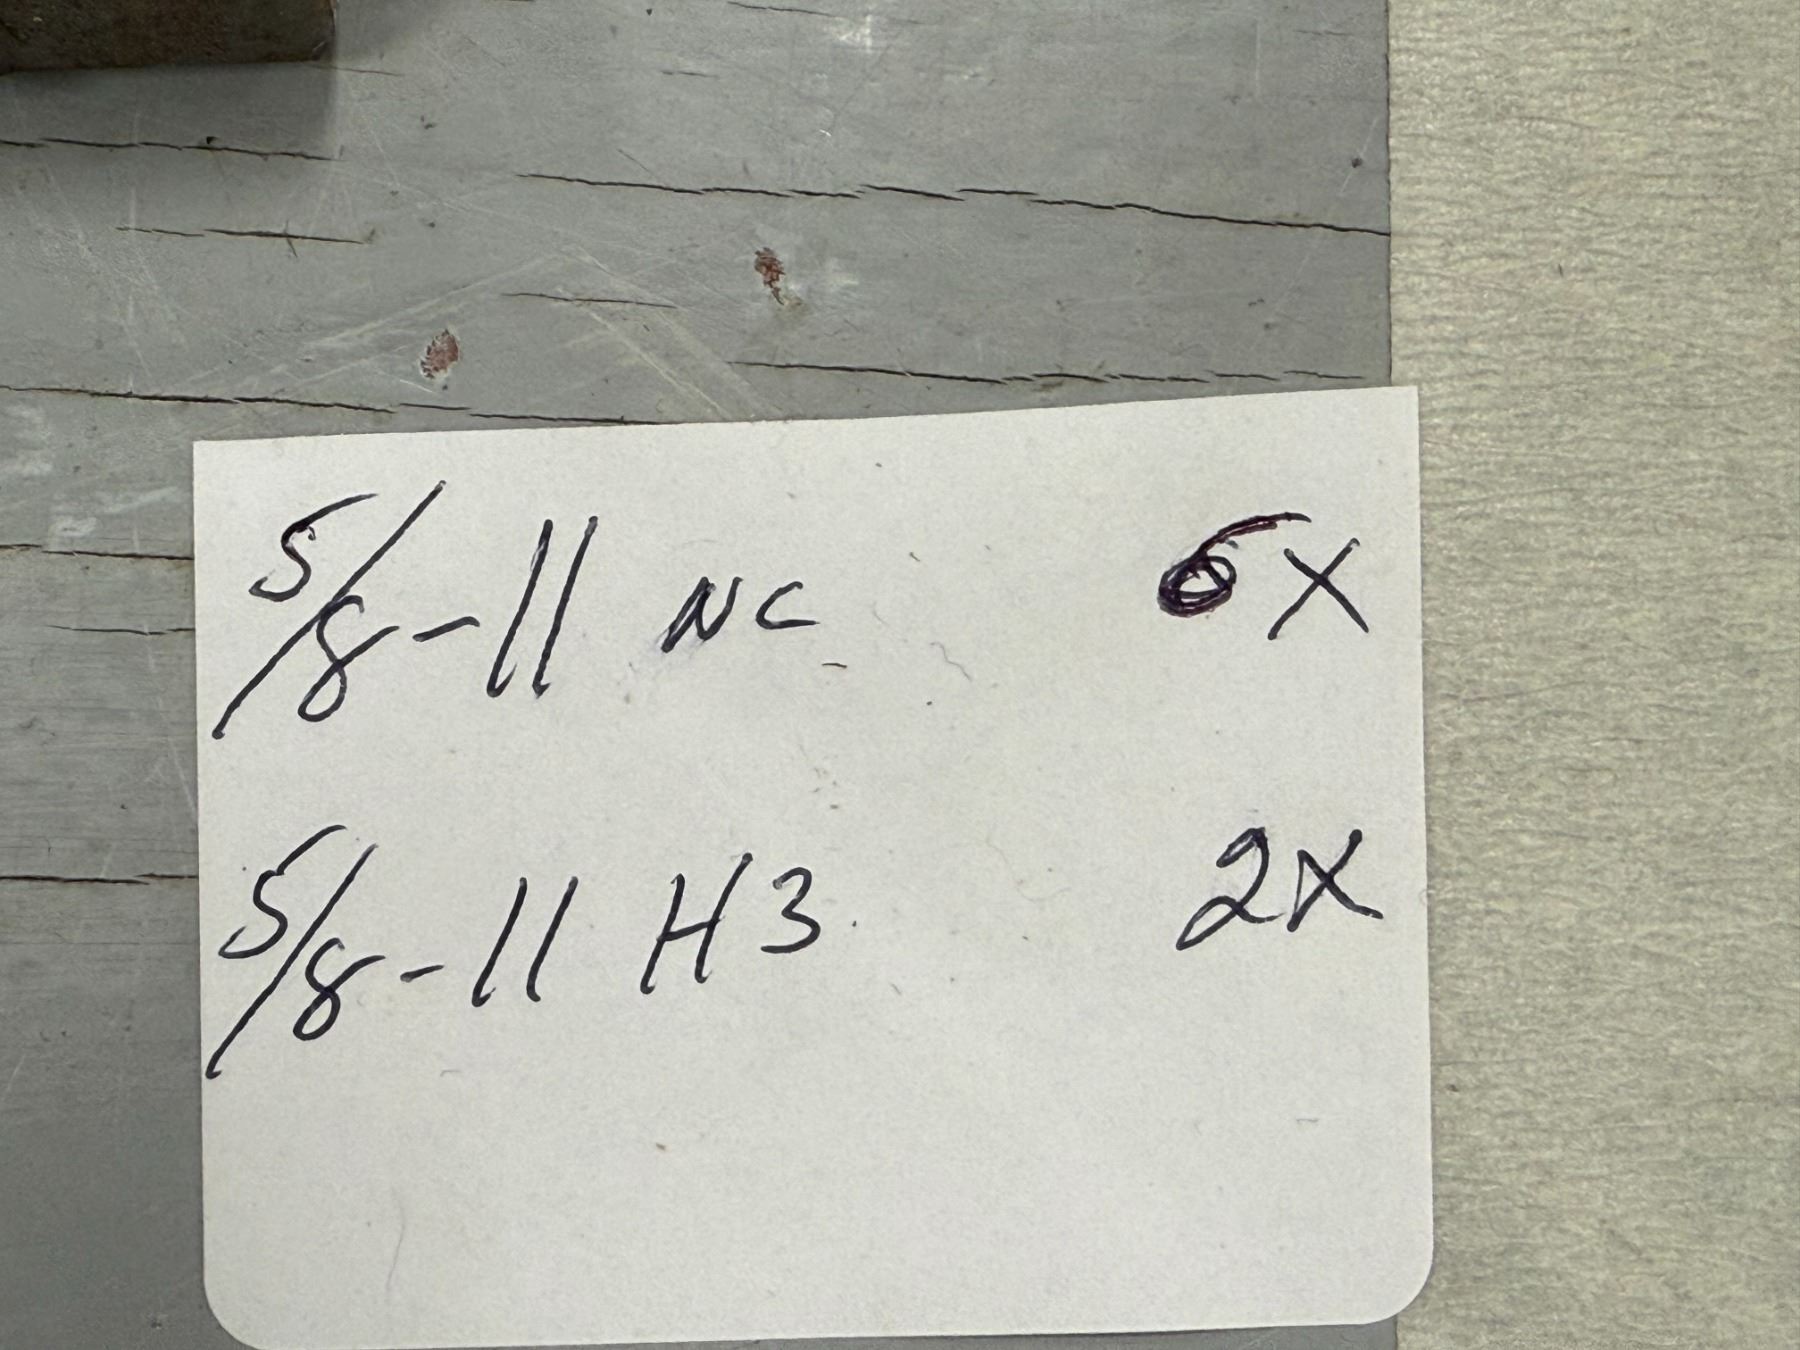 5/8-11 NC 6X
5/8-11 H3 2X